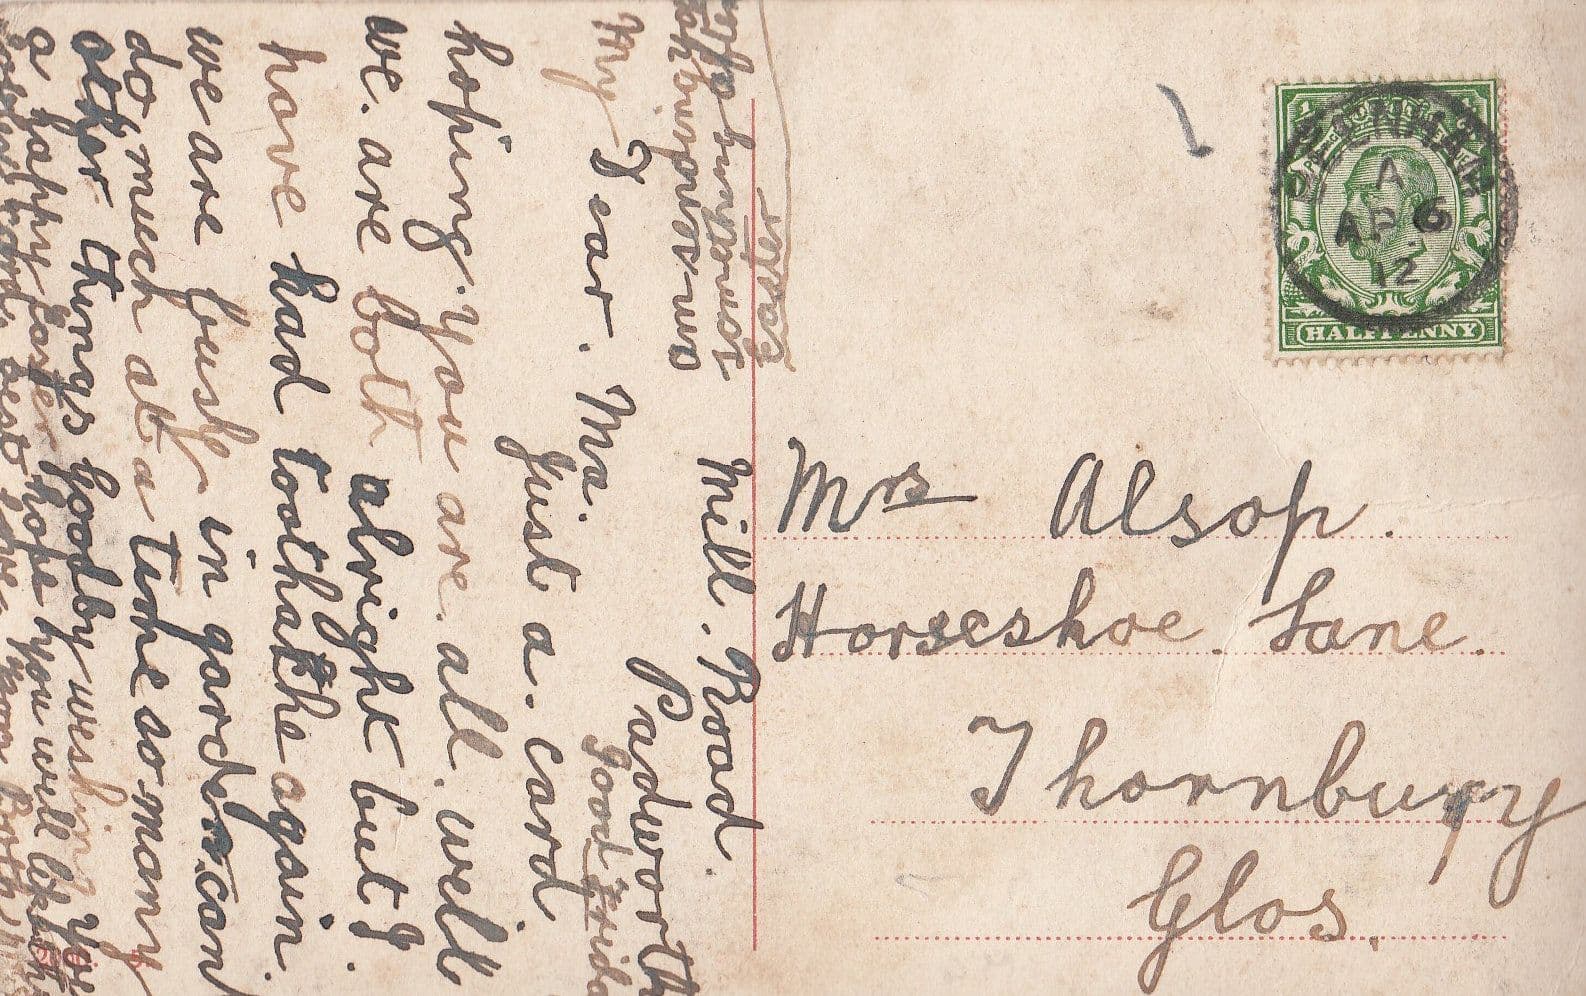 Mill. Road.
Padworth
Good Friday
My Dear. Ma.
Just a. card
hoping. you are. all. well
we. are both alright but I
have had toothakhe again.
we are busy. in garden. can
do much at a time so many
other things goodby wishing you
a happy Easter hope you will like
best love from both
Easter
Mrs Alsop.
Horseshoe. Lane.
Thornbury
Glos.
A
AP 6
12
HALFPENNY